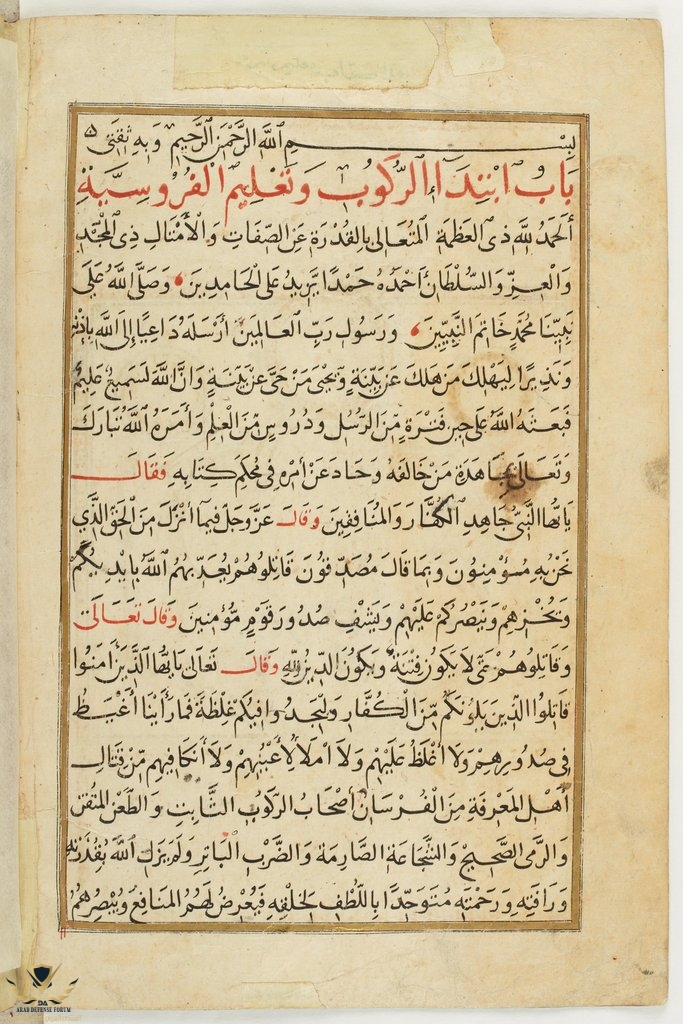 بِسْمِ اللَّهِ الرَّحْمَنِ الرَّحِيمِ وَبِهِ ثِقَتِي
بَابُ ابْتِدَاءِ الرُّكُوبِ وَتَعْلِيمِ الْفُرُوسِيَّةِ
اَلْحَمْدُ لِلَّهِ ذِي الْعَظَمَةِ الْمُتَعَالِى بِالْقُدْرَةِ عَنِ الصِّفَاتِ وَالْأَمْثَالِ ذِي الْمَجْدِ
وَالْعِزِّ وَالسُّلْطَانِ أَحْمَدُهُ حَمْدًا يَزِيدُ عَلَى الْحَامِدِينَ وَصَلَّى اللَّهُ عَلَى
نَبِيِّنَا مُحَمَّدٍ خَاتَمِ النَّبِيِّينَ وَرَسُولِ رَبِّ الْعَالَمِينَ أَرْسَلَهُ دَاعِيًا إِلَى اللَّهِ بِإِذْنِهِ
وَنَذِيرًا لِيَهْلِكَ مَنْ هَلَكَ عَنْ بَيِّنَةٍ وَيَحْيَى مَنْ حَيَّ عَنْ بَيِّنَةٍ وَإِنَّ اللَّهَ لَسَمِيعٌ عَلِيمٌ
فَبَعَثَهُ اللَّهُ عَلَى حِينِ فَتْرَةٍ مِّنَ الرُّسُلِ وَدُرُوسٍ مِّنَ الْعِلْمِ وَأَمَرَهُ اللَّهُ تَبَارَكَ
وَتَعَالَى بِمُجَاهَدَةِ مَنْ خَالَفَهُ وَحَادَ عَنْ أَمْرِهِ فِي مُحْكَمِ كِتَابِهِ فَقَالَ
يَا أَيُّهَا النَّبِيُّ جَاهِدِ الْكُفَّارَ وَالْمُنَافِقِينَ وَقَالَ عَزَّ وَجَلَّ فِيمَا أَنْزَلَ مِنَ الْحَقِّ الَّذِي
نَحْنُ بِهِ مُؤْمِنُونَ وَبِمَا قَالَ مُصَدِّقُونَ قَاتِلُوهُمْ يُعَذِّبْهُمُ اللَّهُ بِأَيْدِيكُمْ
وَيُخْزِهِمْ وَيَنْصُرْكُمْ عَلَيْهِمْ وَيَشْفِ صُدُورَ قَوْمٍ مُّؤْمِنِينَ وَقَالَ تَعَالَى
وَقَاتِلُوهُمْ حَتَّى لَا يَكُونَ فِتْنَةٌ وَيَكُونَ الدِّينُ لِلَّهِ وَقَالَ تَعَالَى يَا أَيُّهَا الَّذِينَ آمَنُوا
قَاتِلُوا الَّذِينَ يَلُونَكُمْ مِّنَ الْكُفَّارِ وَلْيَجِدُوا فِيكُمْ غِلْظَةً فَمَا رَأَيْنَا أَغْيَظُ
فِي صُدُورِهِمْ وَلَا أَغْلَظُ عَلَيْهِمْ وَلَا أَمْلَأُ لِأَعْيُنِهِمْ وَلَا أَنْكَا فِيهِمْ مِّنْ قِتَالِ
أَهْلِ الْمَعْرِفَةِ مِنَ الْفُرْسَانِ أَصْحَابُ الرُّكُوبِ الثَّابِتِ وَالطَّعْنِ الْمُتْقَنِ
وَالرَّمْيِ الصَّحِيحِ وَالشَّجَاعَةِ الصَّارِمَةِ وَالضَّرْبِ الْبَاتِرِ وَلَمْ يَزَلِ اللَّهُ بِقُدْرَتِهِ
وَرَأْفَتِهِ وَرَحْمَتِهِ مُتَوَحِّدًا بِاللُّطْفِ لِخَلْقِهِ فَيُعْرِضُ لَهُمُ الْمَنَافِعَ وَيُبَصِّرُهُمْ
DA
ARAB DEFENSE FORUM